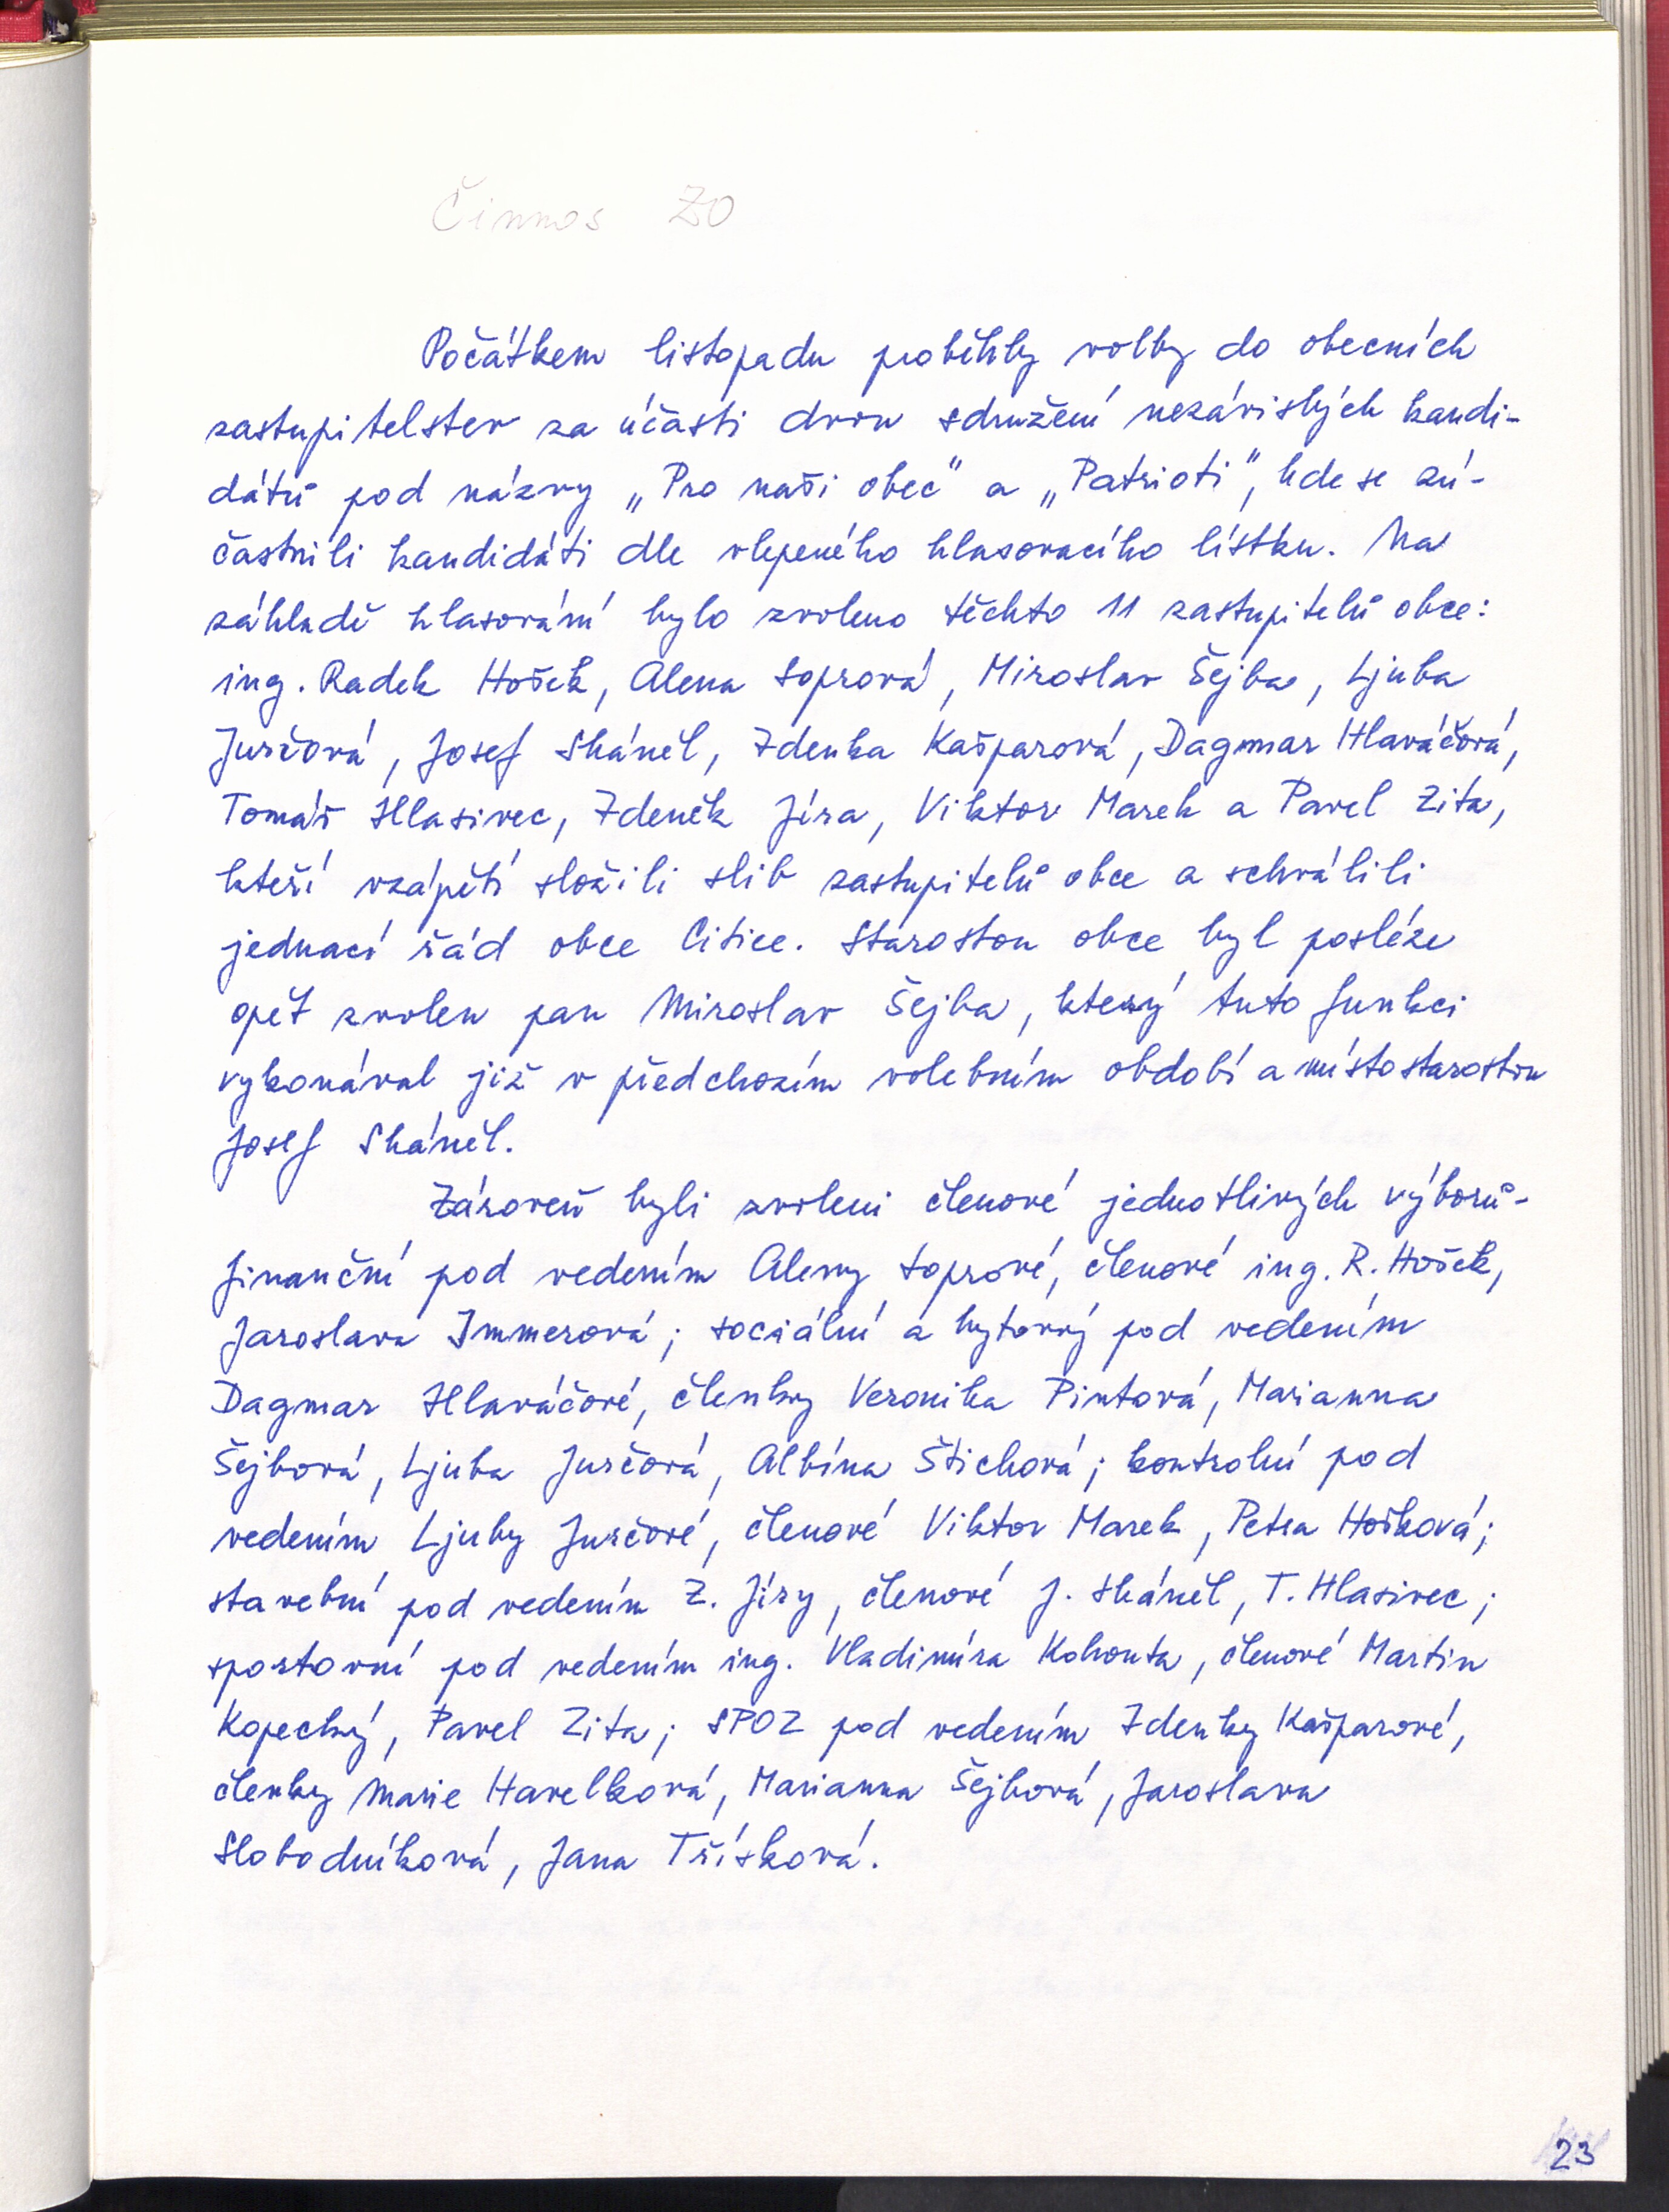 Činnos ZO
Počátkem listopadu proběhly volby do obecních
zastupitelstev za účasti dvou sdružení nezávislých kandi-
dátů pod názvy „Pro naši obec" a „Patrioti", kde se zú-
častnili kandidáti dle vlepeného hlasovacího lístku. Na
základě hlasování bylo zvoleno těchto 11 zastupitelů obce:
ing. Radek Hošek, Alena Soprová, Miroslav Šejba, Ljuba
Jurčová, Josef Skáněl, Zdenka Kašparová, Dagmar Hlaváčová,
Tomáš Hlasivec, Zdeněk Jíra, Viktor Marek a Pavel Zita,
kteří vzápětí složili slib zastupitelů obce a schválili
jednací řád obce Citice. Starostou obce byl posléze
opět zvolen pan Miroslav Šejba, který tuto funkci
vykonával již v předchozím volebním období a místostarostou
Josef Skáněl.
Zároveň byli zvoleni členové jednotlivých výborů -
finanční pod vedením Aleny Soprové, členové ing. R. Hošek,
Jaroslava Immerová; sociální a bytový pod vedením
Dagmar Hlaváčové, členky Veronika Pintová, Marianna
Šejbová, Ljuba Jurčová, Albína Štichová; kontrolní pod
vedením Ljuby Jurčové, členové Viktor Marek, Petra Hošková;
stavební pod vedením Z. Jíry, členové J. Skáněl, T. Hlasivec;
sportovní pod vedením ing. Vladimíra Kohouta, členové Martin
Kopecký, Pavel Zita; SPOZ pod vedením Zdenky Kašparové,
členky Marie Havelková, Marianna Šejbová, Jaroslava
Slobodníková, Jana Třísková.
23